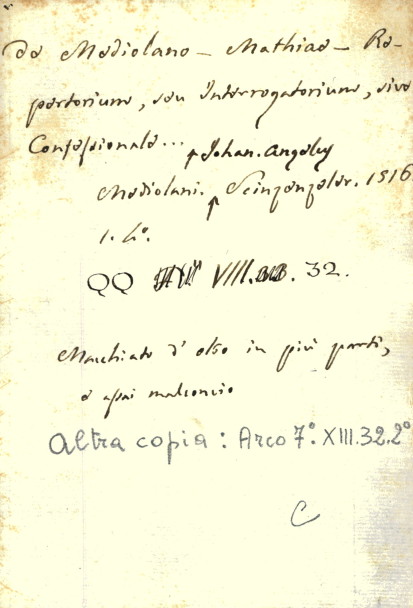 De Mediolano – Mathiae – Re-
pertorium, seu Interrogatorium, sive
Confessionale...
Johan. Angelus
Mediolani. Scinzenzeler. 1516
1. 4º.
QQ VIII. 32.
Macchiato d'olio in più parti,
e assai malconcio
Altra copia: Arco 7º. XIII.32.2º
C